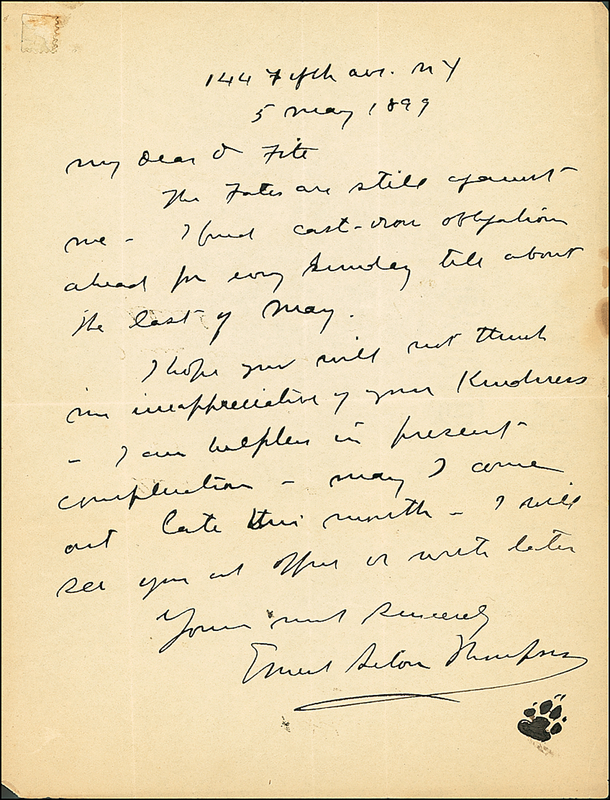 144 Fifth ave. N Y
5 May 1899
My Dear Dr Fite
The Fates are still against
me - I find cast-iron obligations
ahead for every Sunday till about
the last of May.
I hope you will not think
me inappreciative of your Kindness
- I am helpless in present
complication - may I come
out late this month - I will
see you at office or write later
Yours most Sincerely
Ernest Seton Thompson